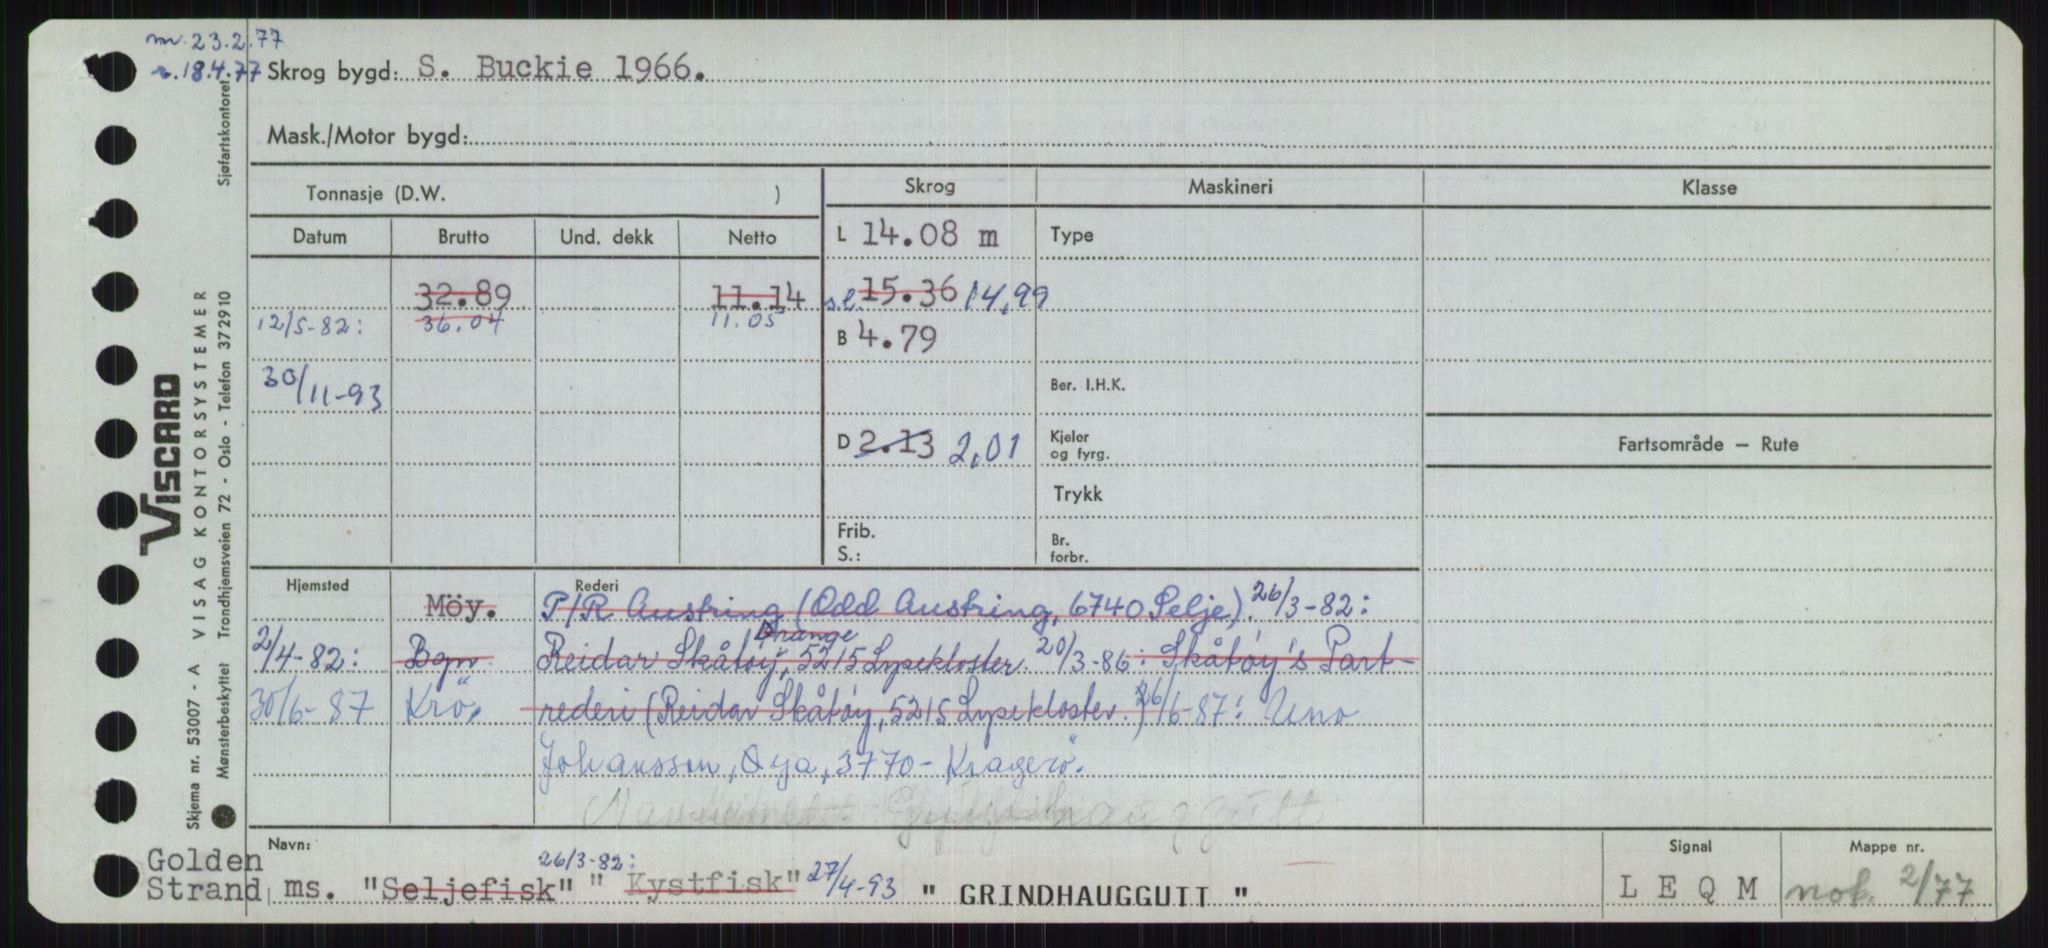 m. 23.2.77
r. 18.4.77 Skrog bygd: S. Buckie 1966.
Mask./Motor bygd:
Tonnasje (D.W. )
Skrog Maskineri Klasse
Datum Brutto Und. dekk Netto
L 14.08 m Type
32.89 11.14 s.l. 15.36 14,99
12/5-82: 36.04 11.05
B 4.79
30/11-93 Ber. I.H.K.
D 2.13 2,01 Kjeler og fyrg.
Fartsområde — Rute
Trykk
Frib.
S.:
Br. forbr.
Hjemsted Rederi
Möy. P/R Austring (Odd Austring, 6740 Selje). 26/3-82:
Drange
2/4-82: Bgn Reidar Skåtøy, 5215 Lysekloster. 20/3-86: Skåtøy's Part-
30/6-87 Krö. rederi (Reidar Skåtøy, 5215 Lysekloster.) 26/6-87: Uno
Johansson, Øya, 3770 - Kragerö.
Navn:
Signal Mappe nr.
26/3-82:
Golden
Strand ms. "Seljefisk" "Kystfisk" 27/4-93 "GRINDHAUGGUTT" L E Q M nok. 2/77
Skjema nr. 53007 - A VISAG KONTORSYSTEMER
VISCARD
Mønsterbeskyttet Trondhjemsveien 72 - Oslo - Telefon 372910
Sjøfartskontoret